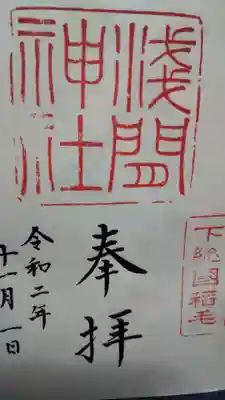 浅間
神社
下総國稲毛
奉拝
令和二年
十一月一日